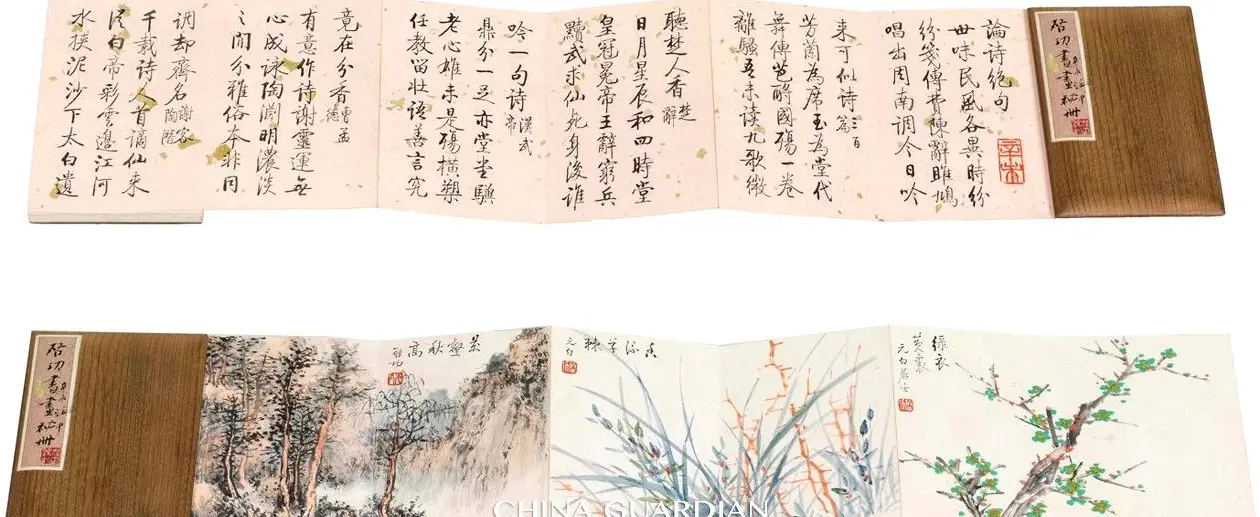 啓功書畫秘册
論詩絕句
世味民風各異時紛
紛箋傳費陳辭雎鳩
唱出周南調今日吟
来可似詩 三百篇
芳蘭為席玉為堂代
舞傳芭酹國殤一卷
離騷吾未讀九歌微
聽楚人香 楚辭
日月星辰和四時堂
皇冠冕帝王辭窮兵
黷武求仙死身後誰
吟一句詩 漢武帝
鼎分一足亦堂堂驥
老心雄未是殤橫槊
任教留壯語善言究
竟在分香 曹孟德
有意作詩謝靈運無
心成詠陶淵明濃淡
之間分雅俗本非同
調却齊名 謝客陶潛
千載詩人首謫仙来
從白帝彩雲邊江河
水挾泥沙下太白遺
啓功書畫秘册
壑秋高
啓功
元白
綠衣
黄裏
元白居士
CHINA GUARDIAN